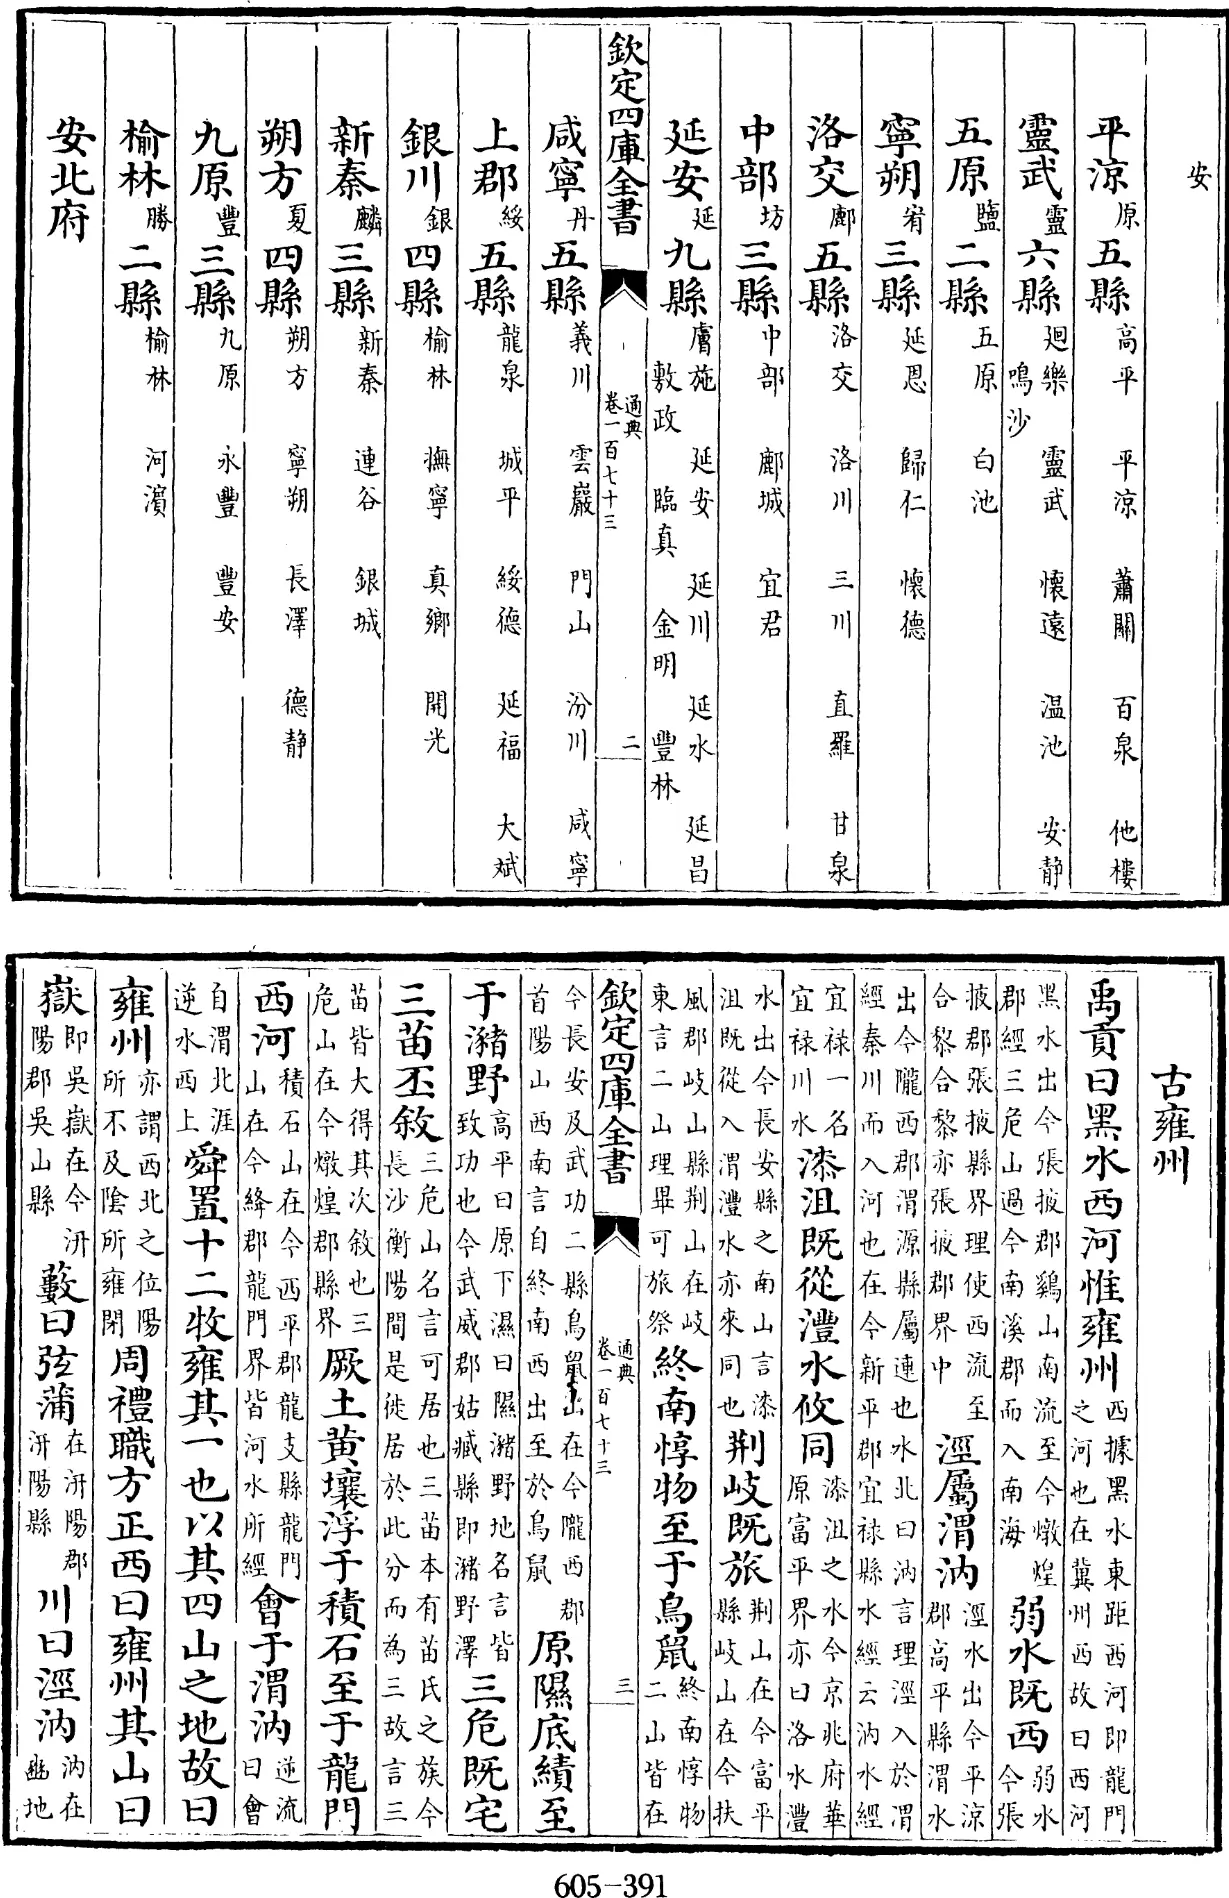 安
平涼原五縣高平 平涼 蕭關 百泉 他樓
靈武靈六縣廻樂 靈武 懷遠 温池 安靜鳴沙
五原鹽二縣五原 白池
寧朔宥三縣延恩 歸仁 懷德
洛交鄜五縣洛交 洛川 三川 直羅 甘泉
中部坊三縣中部 鄜城 宜君
延安延九縣膚施 延安 延川 延水 延昌敷政 臨真 金明 豐林
欽定四庫全書 通典卷一百七十三 二
咸寧丹五縣義川 雲巖 門山 汾川 咸寧
上郡綏五縣龍泉 城平 綏德 延福 大斌
銀川銀四縣榆林 撫寧 真鄉 開光
新秦麟三縣新秦 連谷 銀城
朔方夏四縣朔方 寧朔 長澤 德靜
九原豐三縣九原 永豐 豐安
榆林勝二縣榆林 河濱
安北府
古雍州
禹貢曰黑水西河惟雍州西據黑水東距西河即龍門之河也在冀州西故曰西河
黑水出今張掖郡雞山南流至今燉煌郡經三危山過今南溪郡而入南海弱水既西弱水今張
掖郡張掖縣界理使西流至合黎合黎亦張掖郡界中涇屬渭汭涇水出今平涼郡高平縣渭水
出今隴西郡渭源縣屬連也水北曰汭言理涇入於渭經秦川而入河也在今新平郡宜祿縣水經云汭水經
宜祿一名宜祿川水漆沮既從灃水攸同漆沮之水今京兆府華原富平界亦曰洛水灃
水出今長安縣之南山言漆沮既從入渭灃水亦來同也荆岐既旅荆山在今富平縣岐山在今扶
風郡岐山縣荆山在岐東言二山理畢可旅祭終南惇物至于鳥鼠終南惇物二山皆在
欽定四庫全書 通典卷一百七十三 三
今長安及武功二縣鳥鼠山在今隴西郡首陽山西南言自終南西出至於鳥鼠原隰厎績至
于瀦野高平曰原下濕曰隰瀦野地名言皆致功也今武威郡姑臧縣即瀦野澤三危既宅
三苗丕敘三危山名言可居也三苗本有苗氏之族今長沙衡陽間是徙居於此分而為三故言三
苗皆大得其次敘也三危山在今燉煌郡縣界厥土黄壤浮于積石至于龍門
西河積石山在今西平郡龍支縣龍門山在今絳郡龍門界皆河水所經會于渭汭逆流曰會
自渭北涯逆水西上舜置十二牧雍其一也以其四山之地故曰
雍州亦謂西北之位陽所不及陰所雍閉周禮職方正西曰雍州其山曰
嶽即吳嶽在今汧陽郡吳山縣藪曰弦蒲在汧陽郡汧陽縣川曰涇汭汭在豳地
605-391